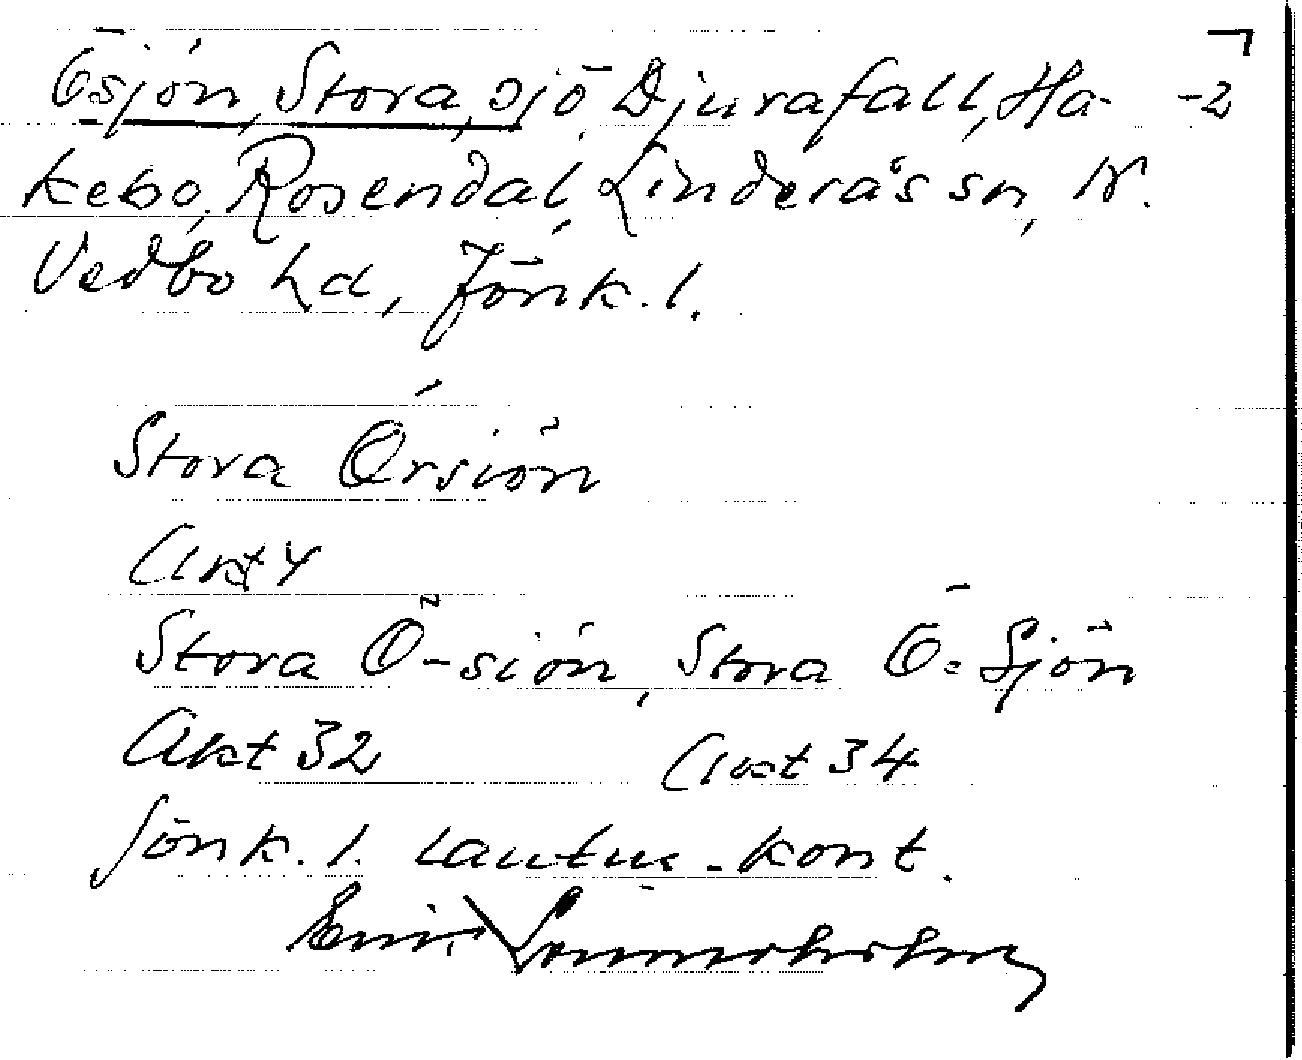 Ösjön, Stora, sjö, Djurafall, Ha- -2
kebo, Rosendal, Linderås sn, N.
Vedbo hd, Jönk. l.
Stora Örsiön
Akt 4
Stora Ö-siön, Stora Ö=Sjön
Akt 32 Akt 34
Jönk. l. Lantm.-kont.